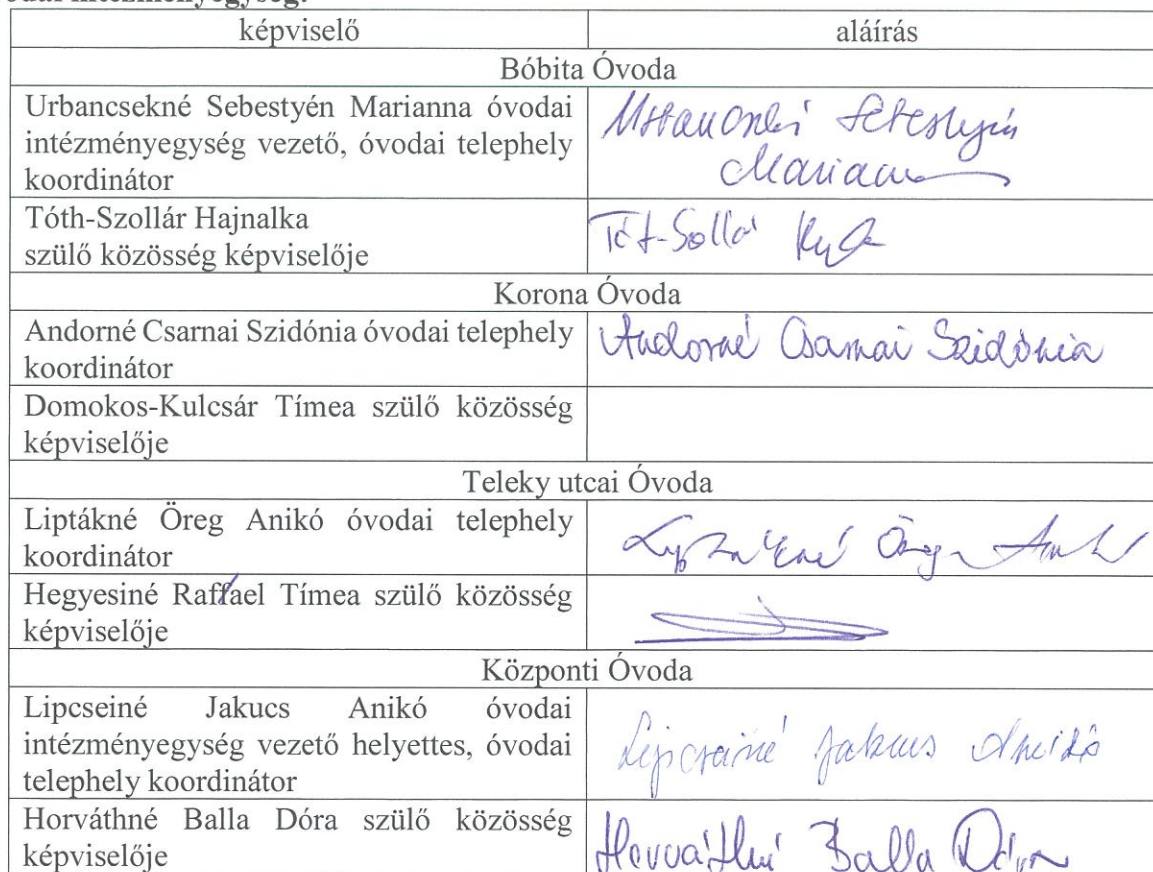 képviselő aláírás
Bóbita Óvoda
Urbancsekné Sebestyén Marianna óvodai
intézményegység vezető, óvodai telephely
koordinátor
Sebestyén
Mariann
Tóth-Szollár Hajnalka
szülő közösség képviselője
Korona Óvoda
Andorné Csarnai Szidónia óvodai telephely
koordinátor
Andorné Csarnai Szidónia
Domokos-Kulcsár Tímea szülő közösség
képviselője
Teleky utcai Óvoda
Liptákné Öreg Anikó óvodai telephely
koordinátor
Liptákné Öreg Anikó
Hegyesiné Raffael Tímea szülő közösség
képviselője
Központi Óvoda
Lipcseiné Jakucs Anikó óvodai
intézményegység vezető helyettes, óvodai
telephely koordinátor
Lipcseiné Jakucs Anikó
Horváthné Balla Dóra szülő közösség
képviselője
Horváthné Balla Dóra